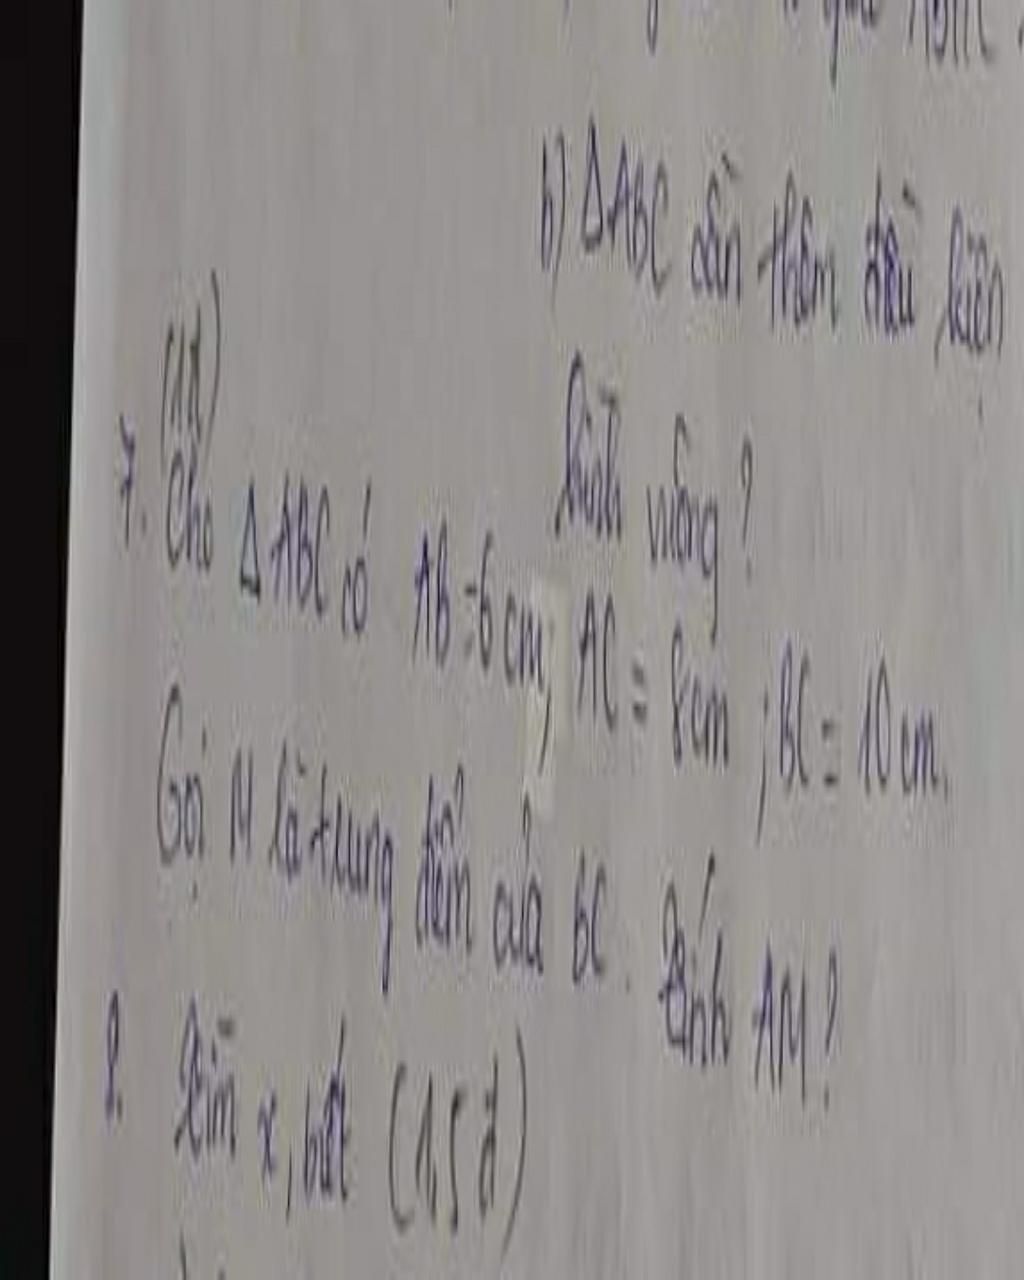 b) ΔABC cần thêm điều kiện
hình vuông?
(1đ)
7. Cho ΔABC có AB=6cm; AC = 8cm ; BC = 10cm.
Gọi M là trung điểm của BC. Tính AM?
8. Tìm x, biết (1,5đ)